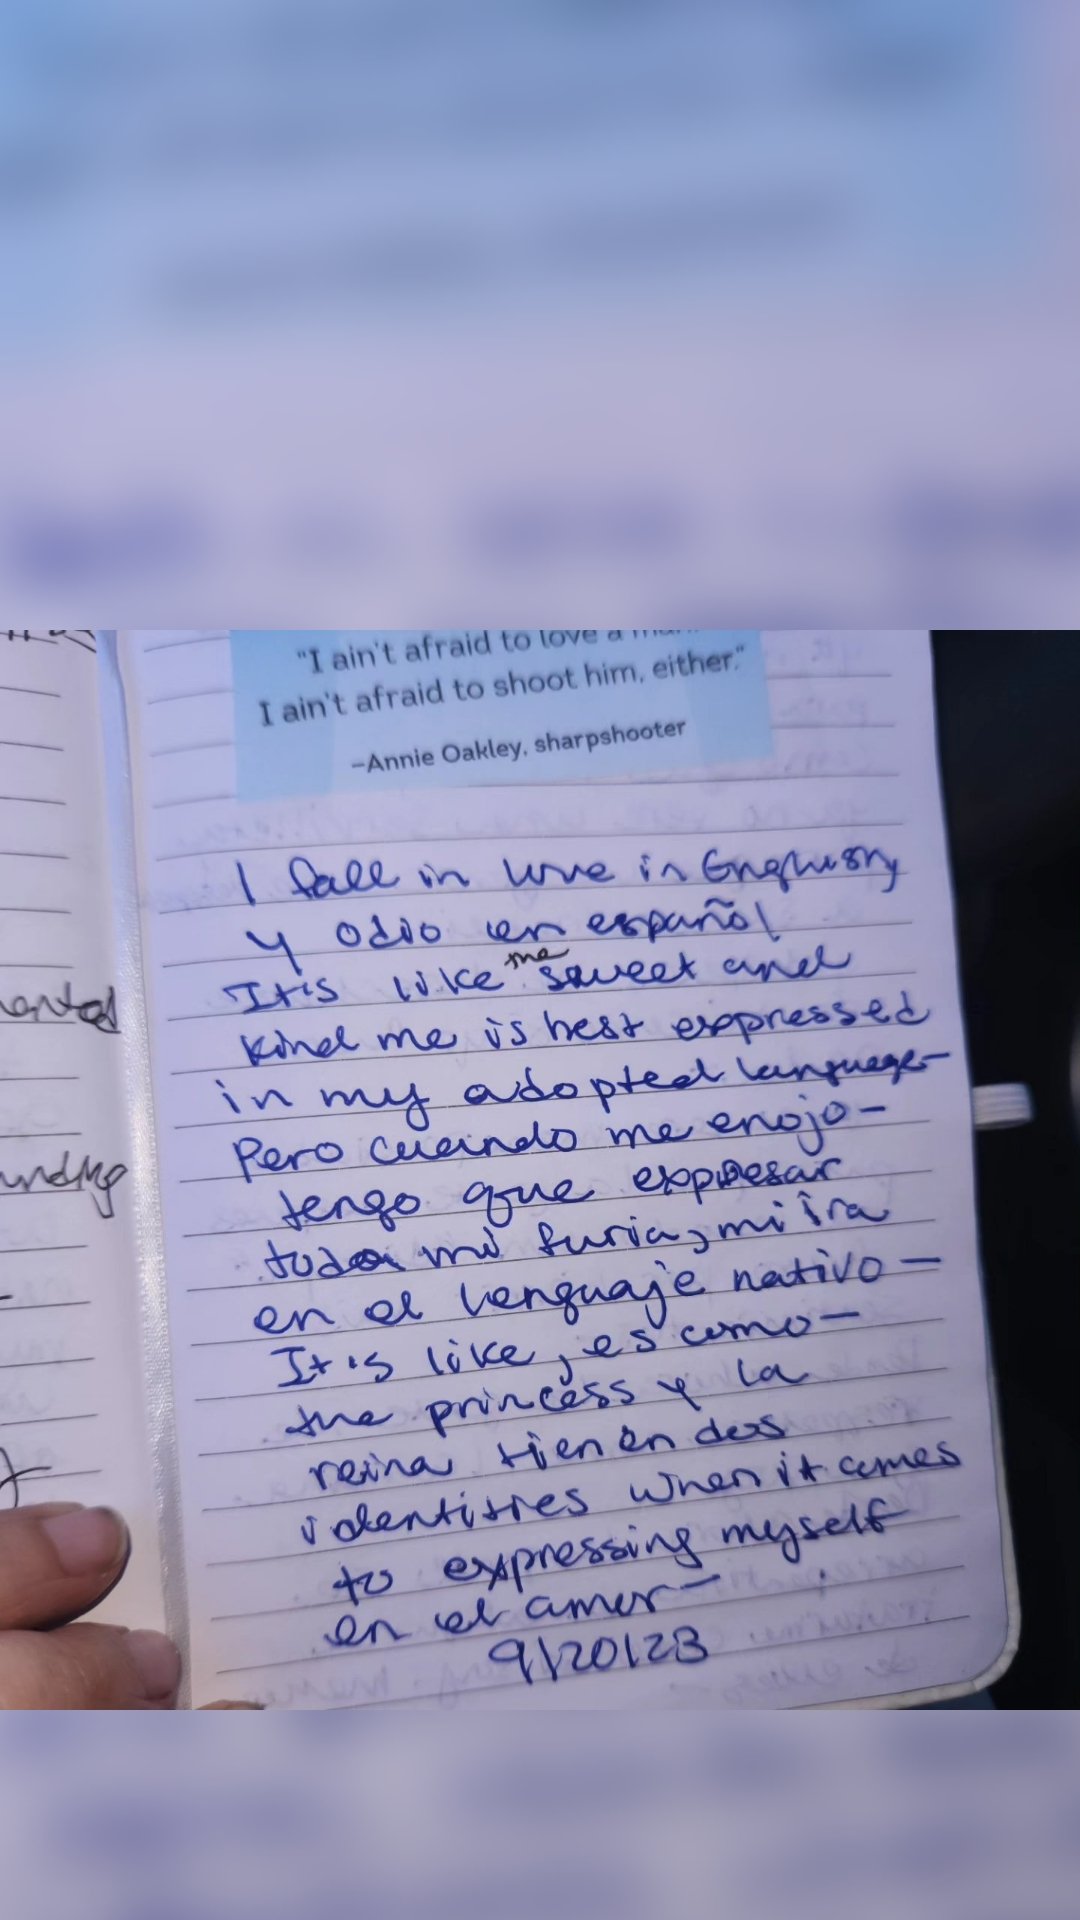 "I ain't afraid to love a man.
I ain't afraid to shoot him, either."
–Annie Oakley, sharpshooter
I fall in love in English,
y odio en español
It's like the sweet and
kind me is best expressed
in my adopted language–
Pero cuando me enojo–
tengo que expresar
toda mi furia, mi ira
en el lenguaje nativo–
It's like, es como–
the princess y la
reina tienen dos
identities when it comes
to expressing myself
en el amor–
9/20/23